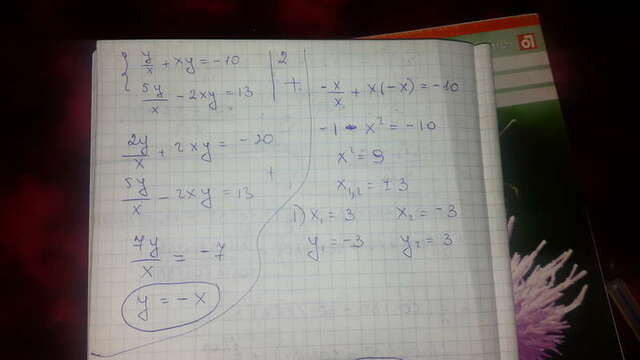 { y/x + xy = -10 | 2
5y/x - 2xy = 13 | +
2y/x + 2xy = -20
+
5y/x - 2xy = 13
7y/x = -7
y = -x
-x/x + x(-x) = -10
-1 - x² = -10
x² = 9
x₁,₂ = ±3
1) x₁ = 3 x₂ = -3
y₁ = -3 y₂ = 3